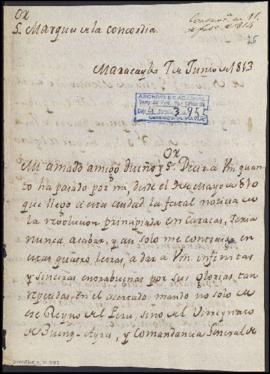 Sr Marques de la concordia.
Maracaybo 1 de Junio de 1813
Mi amado amigo dueño y Sr. Decir a Vm quan
to ha pasado por mi, desde el de Mayo de 810
que llegó a esta ciudad la fatal noticia de
la revolucion principiada en Caracas, seria
nunca acabar, y asi solo me contraigo en
estas quatro letras, a dar a Vm. infinitas
y sinceras enorabuenas por sus glorias tan
repetidas en el acertado mando no solo de
ese Reyno del Peru, sino del Virreynato
de Buenos Ayres, y Comandancia General de